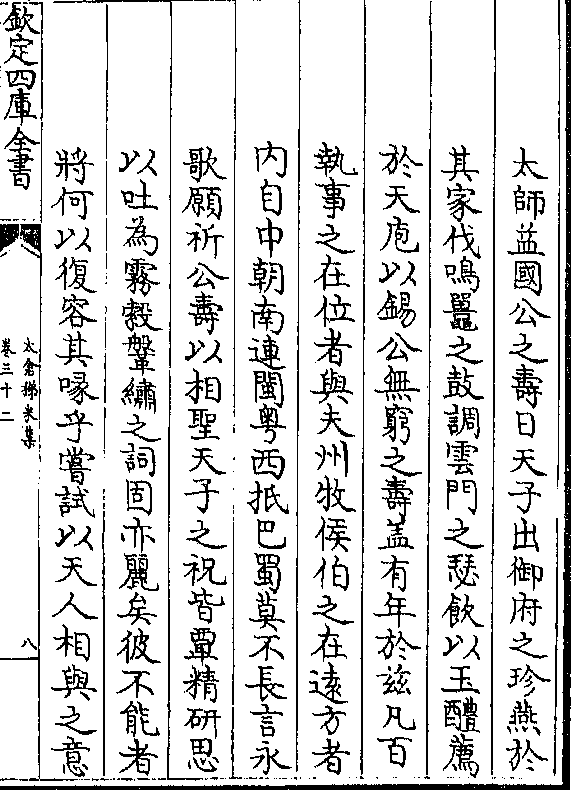 太師益國公之壽日天子出御府之珍燕於
其家伐鳴鼉之鼓調雲門之瑟飲以玉醴薦
於天庖以錫公無窮之壽蓋有年於兹凡百
執事之在位者與夫州牧侯伯之在逺方者
内自中朝南連閩粤西抵巴蜀莫不長言永
歌願祈公壽以相聖天子之祝皆覃精研思
以吐為霧縠鞶繡之詞固亦麗矣彼不能者
將何以復容其喙乎嘗試以天人相與之意
欽定四庫全書
太倉稊米集
卷三十二
八